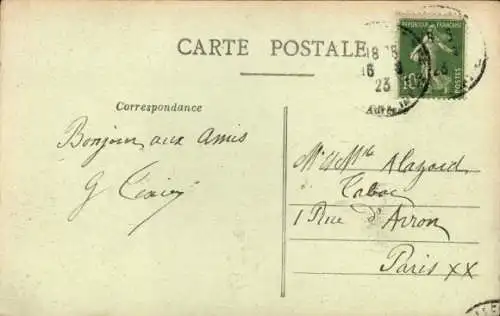 CARTE POSTALE
REPUBLIQUE FRANÇAISE
10
POSTES
18
16
23
Correspondance
Bonjour aux amis
G
Mr et Mme Alazard
Tabac
1 Rue d'Avron
Paris XX